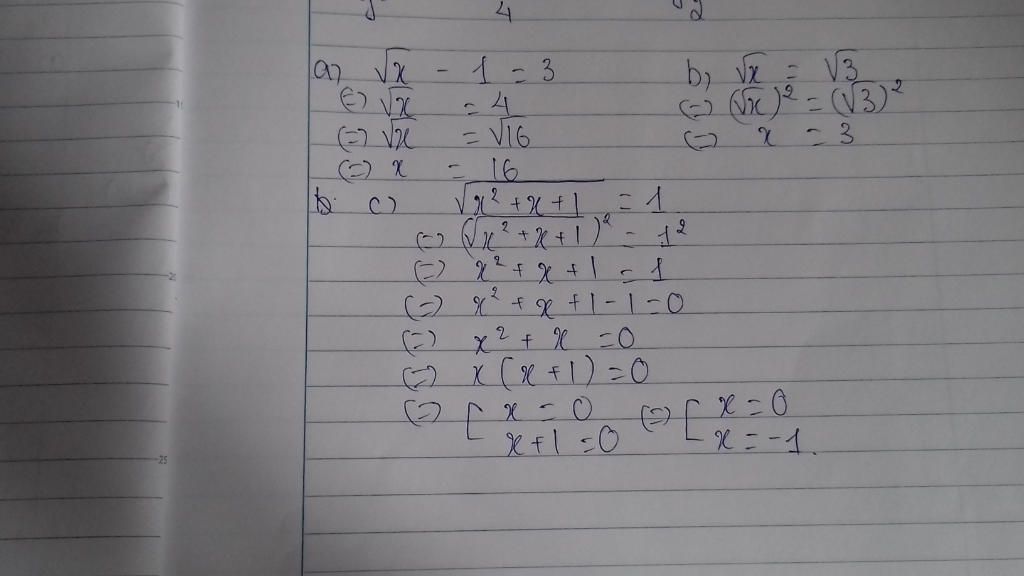 4
√2
a) √x - 1 = 3
(=) √x = 4
(=) √x = √16
(=) x = 16
b) √x = √3
(=) (√x)² = (√3)²
(=) x = 3
c) √x² + x + 1 = 1
(=) (√x² + x + 1)² = 1²
(=) x² + x + 1 = 1
(=) x² + x + 1 - 1 = 0
(=) x² + x = 0
(=) x (x + 1) = 0
(=) [ x = 0 (=) [ x = 0
x + 1 = 0 x = -1.
25